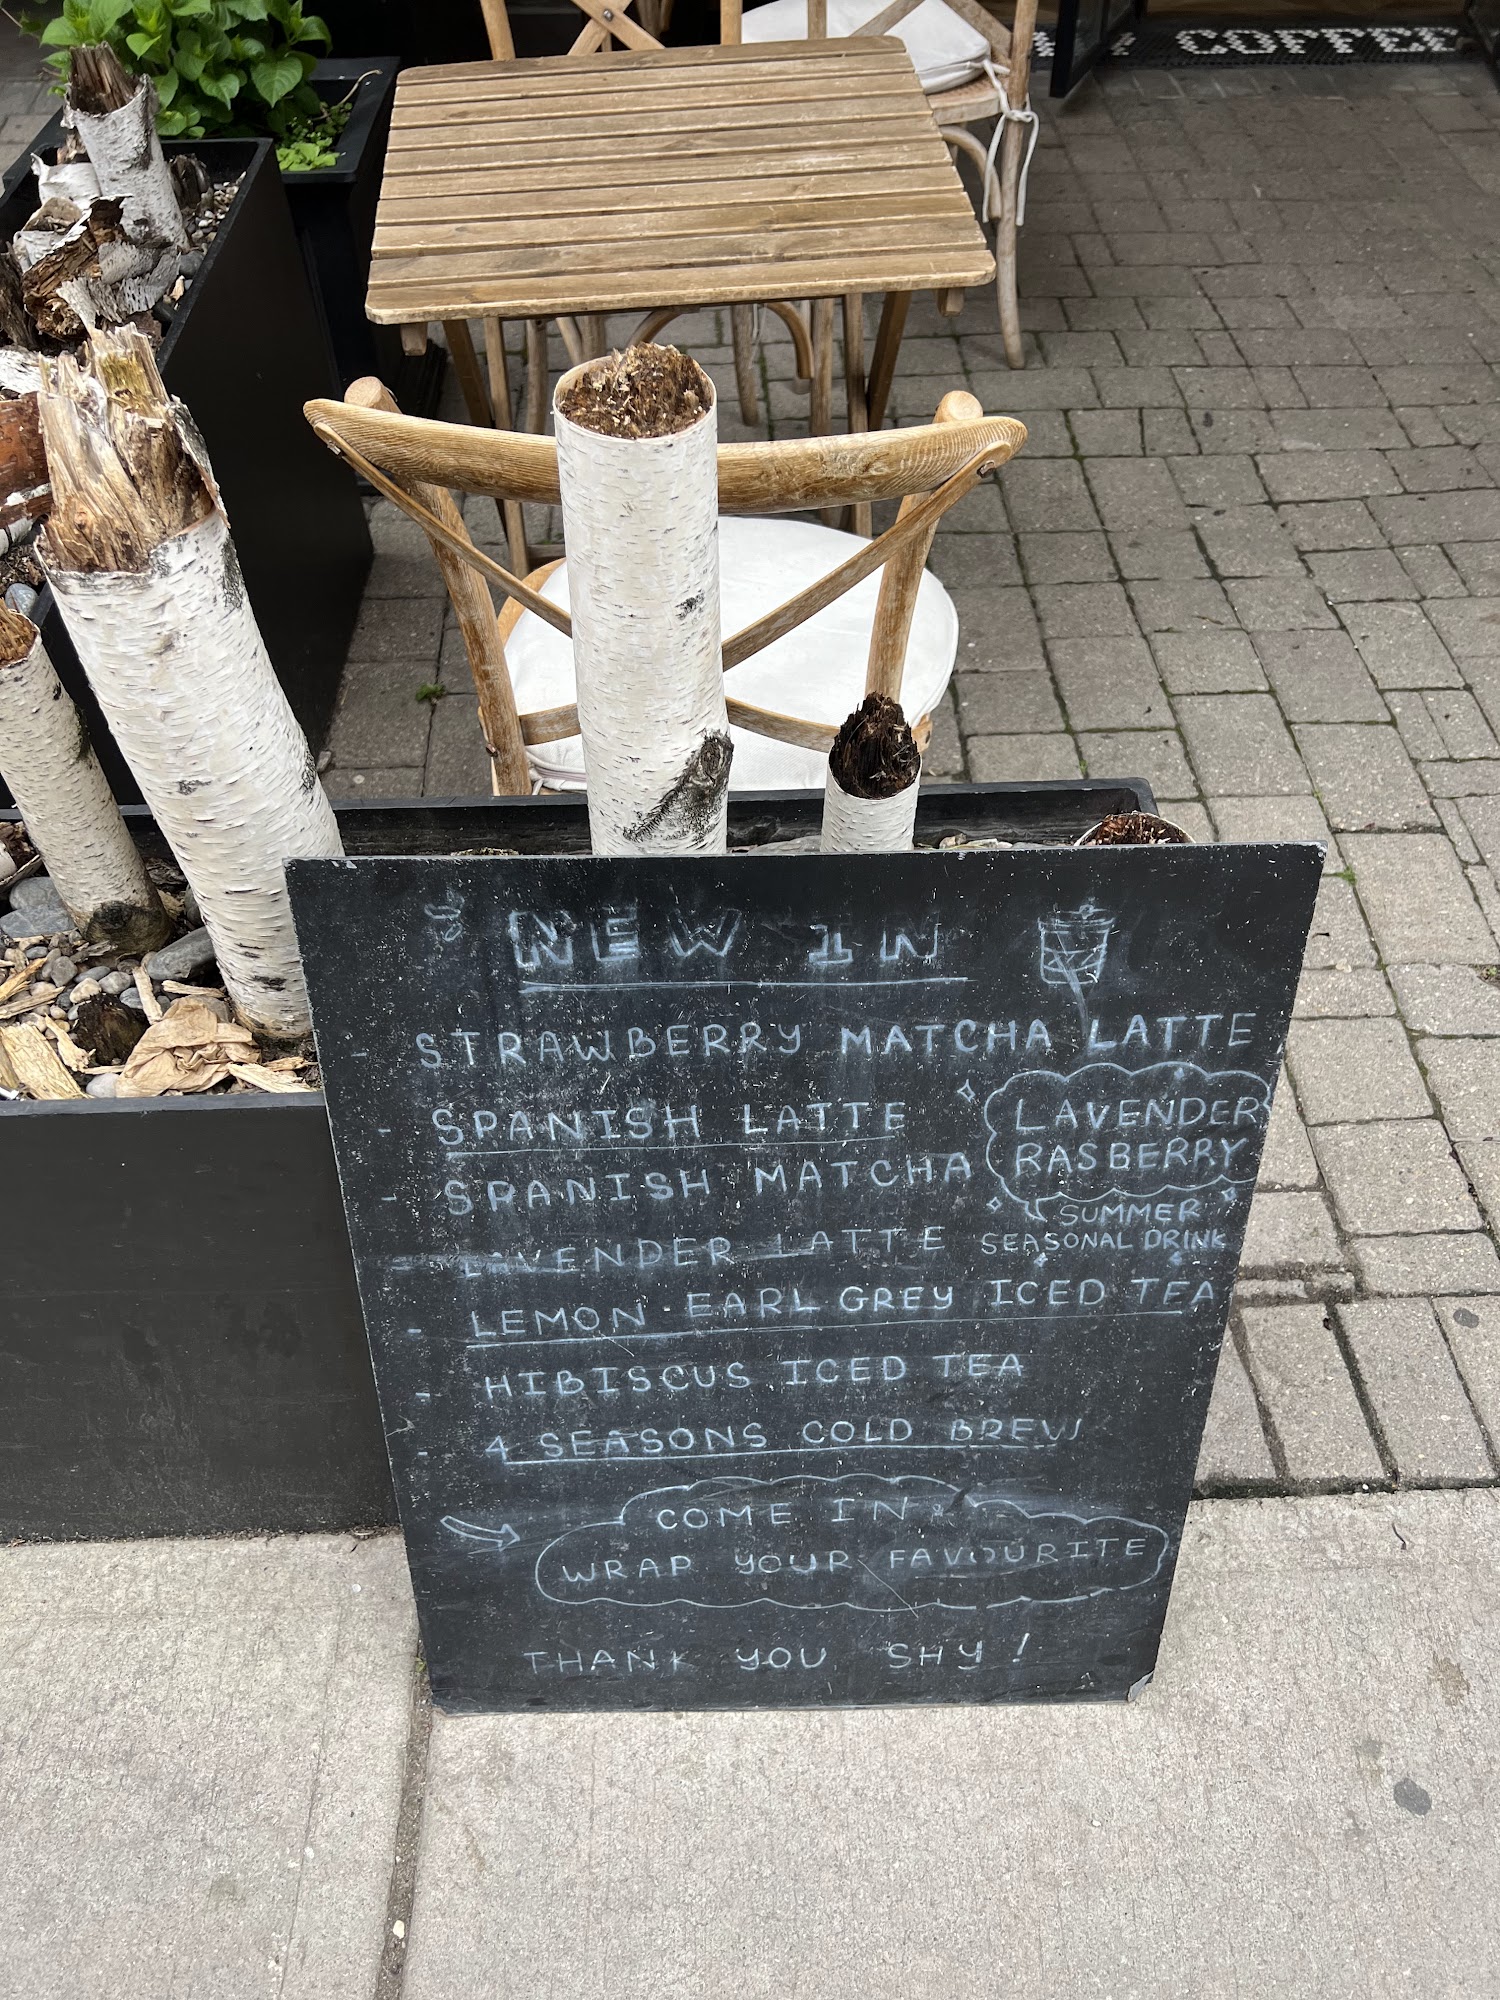 COFFEE
NEW IN
- STRAWBERRY MATCHA LATTE
- SPANISH LATTE
- SPANISH MATCHA
- LAVENDER LATTE
- LEMON EARL GREY ICED TEA
- HIBISCUS ICED TEA
- 4 SEASONS COLD BREW
LAVENDER
RASBERRY
SUMMER
SEASONAL DRINK
COME IN
WRAP YOUR FAVOURITE
THANK YOU SHY!